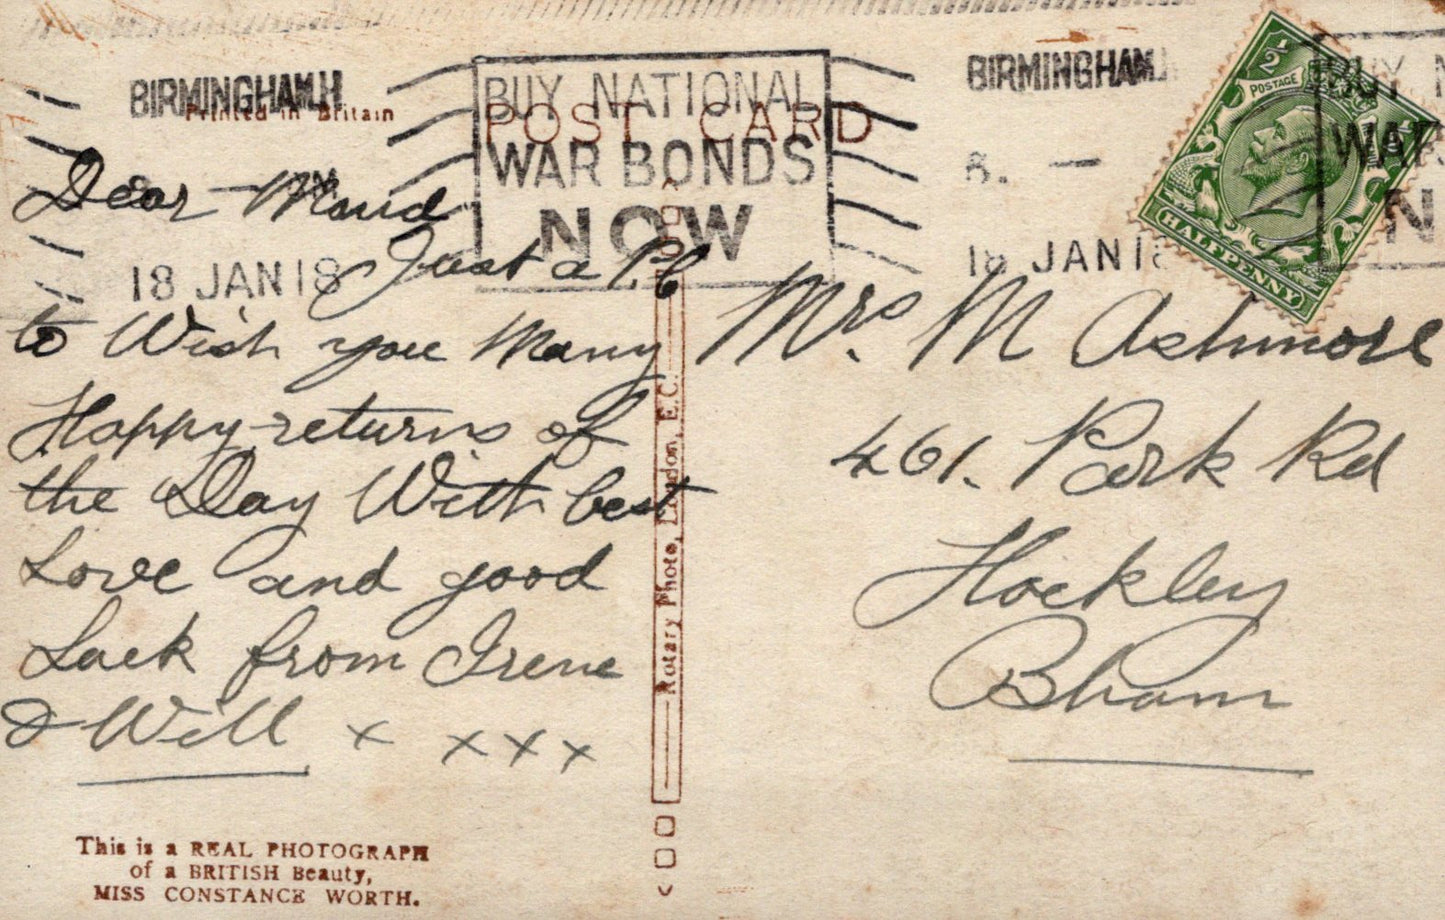 BIRMINGHAM.H
Printed in Britain
18 JAN 18
BUY NATIONAL
WAR BONDS
NOW
POST CARD
BIRMINGHAM.
8. —
18 JAN 1
BUY N
WAR
N
½ POSTAGE ½
HALFPENNY
Dear Maud
Just a P.C
to Wish you Many
Happy returns of
the Day With best
Love and good
Luck from Irene
& Will x x x x
Mrs. M Ashmore
461. Park Rd
Hockley
Bham
Rotary Photo, London, E.C.
This is a REAL PHOTOGRAPH
of a BRITISH Beauty,
MISS CONSTANCE WORTH.